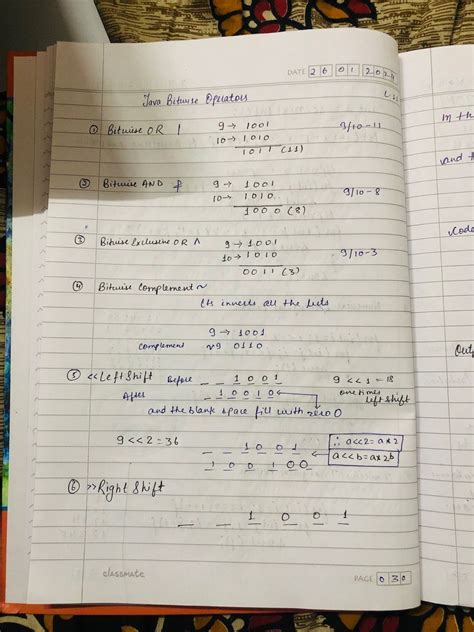 DATE 26 01 202
Java Bitwise Operators
① Bitwise OR | 9 → 1001 9/10 - 11
10 → 1010
1011 (11)
② Bitwise AND 9 → 1001
10 → 1010 9/10 - 8
1000 (8)
③ Bitwise Exclusive OR ^ 9 → 1001
10 → 1010 9/10 - 3
0011 (3)
④ Bitwise Complement ~
It inverts all the bits
9 → 1001
Complement ~9 0110
⑤ << Left Shift Before _ _ 1 0 0 1 9 << 1 = 18
After _ 1 0 0 1 0 one times left shift
and the blank space fill with zero 0
9 << 2 = 36 _ _ 1 0 0 1 ∴ a<<2 = a*2
1 0 0 1 0 0 a<<b = a*2b
⑥ >> Right Shift
_ _ 1 0 0 1
classmate PAGE 030
in th
and t
Code
Outp